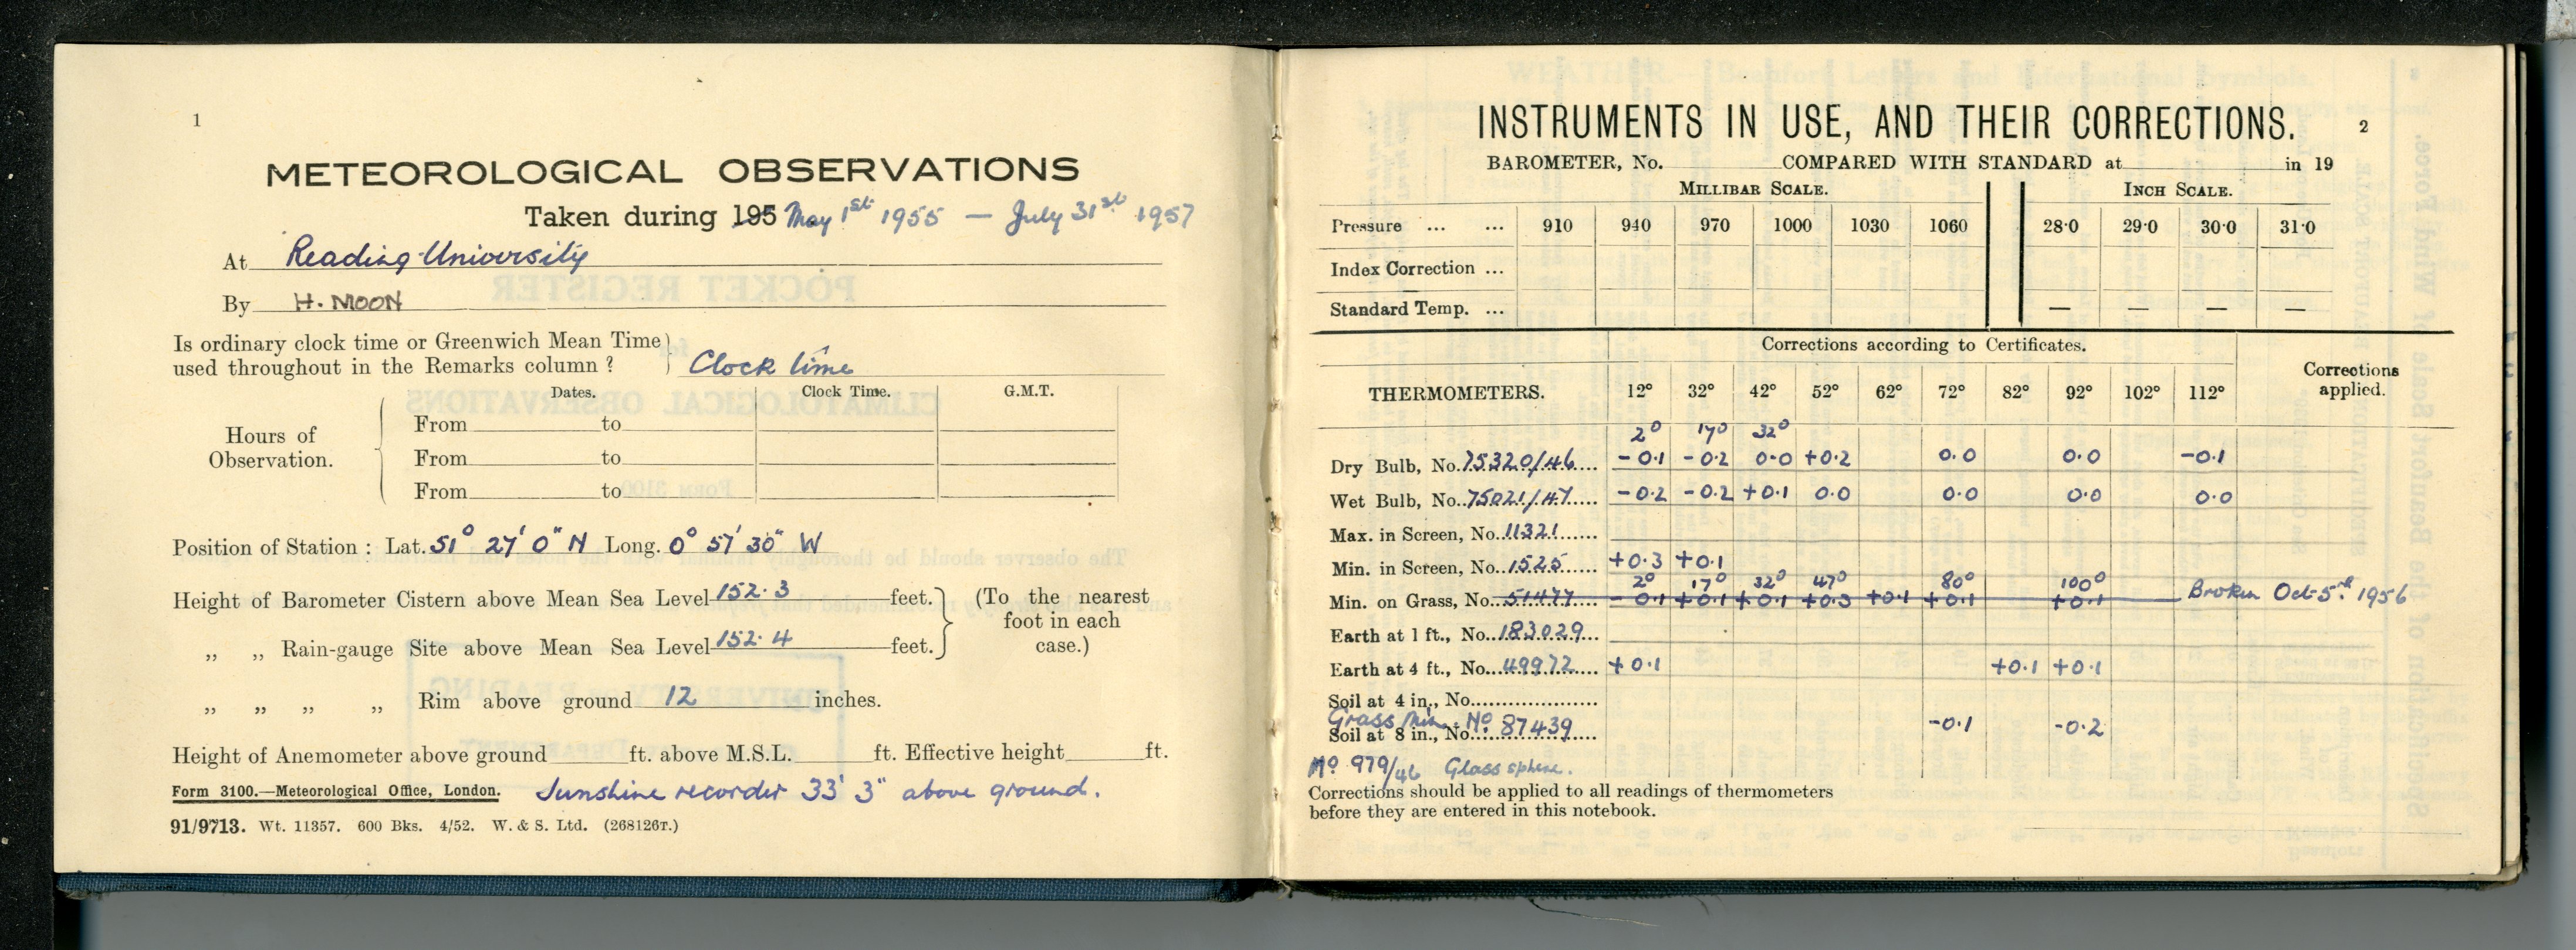 1
METEOROLOGICAL OBSERVATIONS
Taken during 195 May 1st 1955 — July 31st 1957
At Reading University
By H. MOON
Is ordinary clock time or Greenwich Mean Time
used throughout in the Remarks column ? Clock time
Dates. Clock Time. G.M.T.
Hours of
Observation.
From to
From to
From to
Position of Station : Lat. 51° 27' 0" N Long. 0° 57' 30" W
Height of Barometer Cistern above Mean Sea Level 152.3 feet.
„ „ Rain-gauge Site above Mean Sea Level 152.4 feet.
(To the nearest
foot in each
case.)
„ „ „ „ Rim above ground 12 inches.
Height of Anemometer above ground ft. above M.S.L. ft. Effective height ft.
Form 3100.—Meteorological Office, London. Sunshine recorder 33' 3" above ground.
91/9713. Wt. 11357. 600 Bks. 4/52. W. & S. Ltd. (268126T.)
INSTRUMENTS IN USE, AND THEIR CORRECTIONS. 2
BAROMETER, No. COMPARED WITH STANDARD at in 19
MILLIBAR SCALE. INCH SCALE.
Pressure ... ... 910 940 970 1000 1030 1060 28·0 29·0 30·0 31·0
Index Correction ...
Standard Temp. ... — — — —
Corrections according to Certificates.
Corrections
applied.
THERMOMETERS. 12° 32° 42° 52° 62° 72° 82° 92° 102° 112°
2° 17° 32°
Dry Bulb, No. 75320/46 -0.1 -0.2 0.0 +0.2 0.0 0.0 -0.1
Wet Bulb, No. 75021/47 -0.2 -0.2 +0.1 0.0 0.0 0.0 0.0
Max. in Screen, No. 11321
Min. in Screen, No. 1525 +0.3 +0.1
2° 17° 32° 47° 80° 100°
Min. on Grass, No. 51477 -0.1 +0.1 +0.1 +0.3 +0.1 +0.1 +0.1 Broken Oct 5th 1956
Earth at 1 ft., No. 183029
Earth at 4 ft., No. 49972 +0.1 +0.1 +0.1
Soil at 4 in., No.
Grass Min. No. 87439 -0.1 -0.2
Soil at 8 in., No.
No 979/46 Glass sphere.
Corrections should be applied to all readings of thermometers
before they are entered in this notebook.